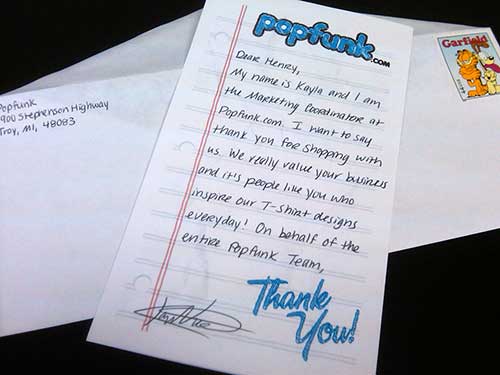 popfunk.com
Dear Henry,
My name is Kayla and I am
the Marketing Coordinator at
Popfunk.com. I want to say
thank you for shopping with
us. We really value your business
and it's people like you who
inspire our T-Shirt designs
everyday! On behalf of the
entire Popfunk Team,
Thank
You!
Popfunk
900 Stephenson Highway
Troy, MI, 48083
Garfield